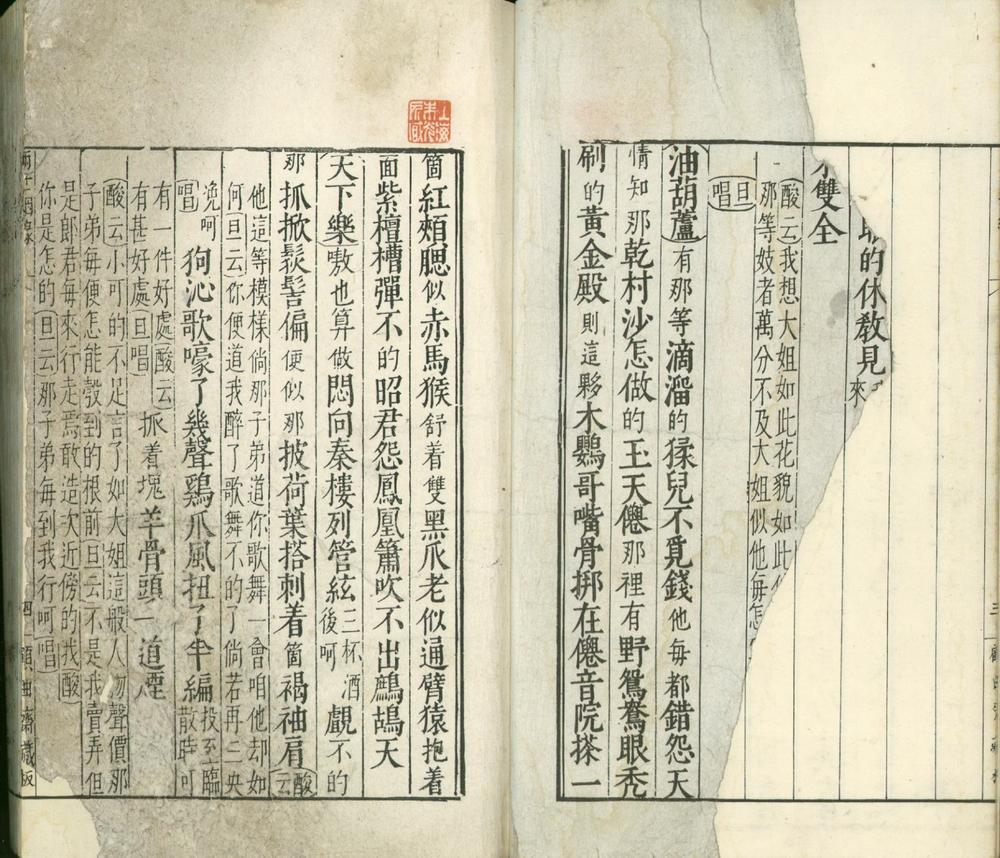 的休敎見
來
雙全
酸云我想大姐如此花貌如此
那等妓者萬分不及大姐似他每怎
旦唱
油葫蘆有那等滴溜的猱兒不覓錢他每都錯怨天
情知那乾村沙怎做的玉天僊那裡有野鴛鴦眼禿
刷的黃金殿則這夥木鸚哥嘴骨挷在僊音院搽一
箇紅頰腮似赤馬猴舒着雙黑爪老似通臂猿抱着
面紫檀槽彈不的昭君怨鳳凰簫吹不出鷓鴣天
天下樂嗷也算做悶向秦樓列管絃三杯酒後呵覷不的
那抓掀鬏髻偏便似那披荷葉搭刺着箇褐袖肩酸云
他這等模樣倘那子弟道你歌舞一會咱他却如
何旦云你便道我醉了歌舞不的了倘若再三央
浼呵唱狗沁歌嚎了幾聲鷄爪風扭了半編投至臨散時可
有一件好處酸云
有甚好處旦唱抓着塊羊骨頭一道煙
酸云小可的不足言了如大姐這般人物聲價那
子弟每便怎能彀到的根前旦云不是我賣弄但
是郎君每來行走焉敢造次近傍的我酸
你是怎的旦云那子弟每到我行呵唱
四
顧曲齋藏板